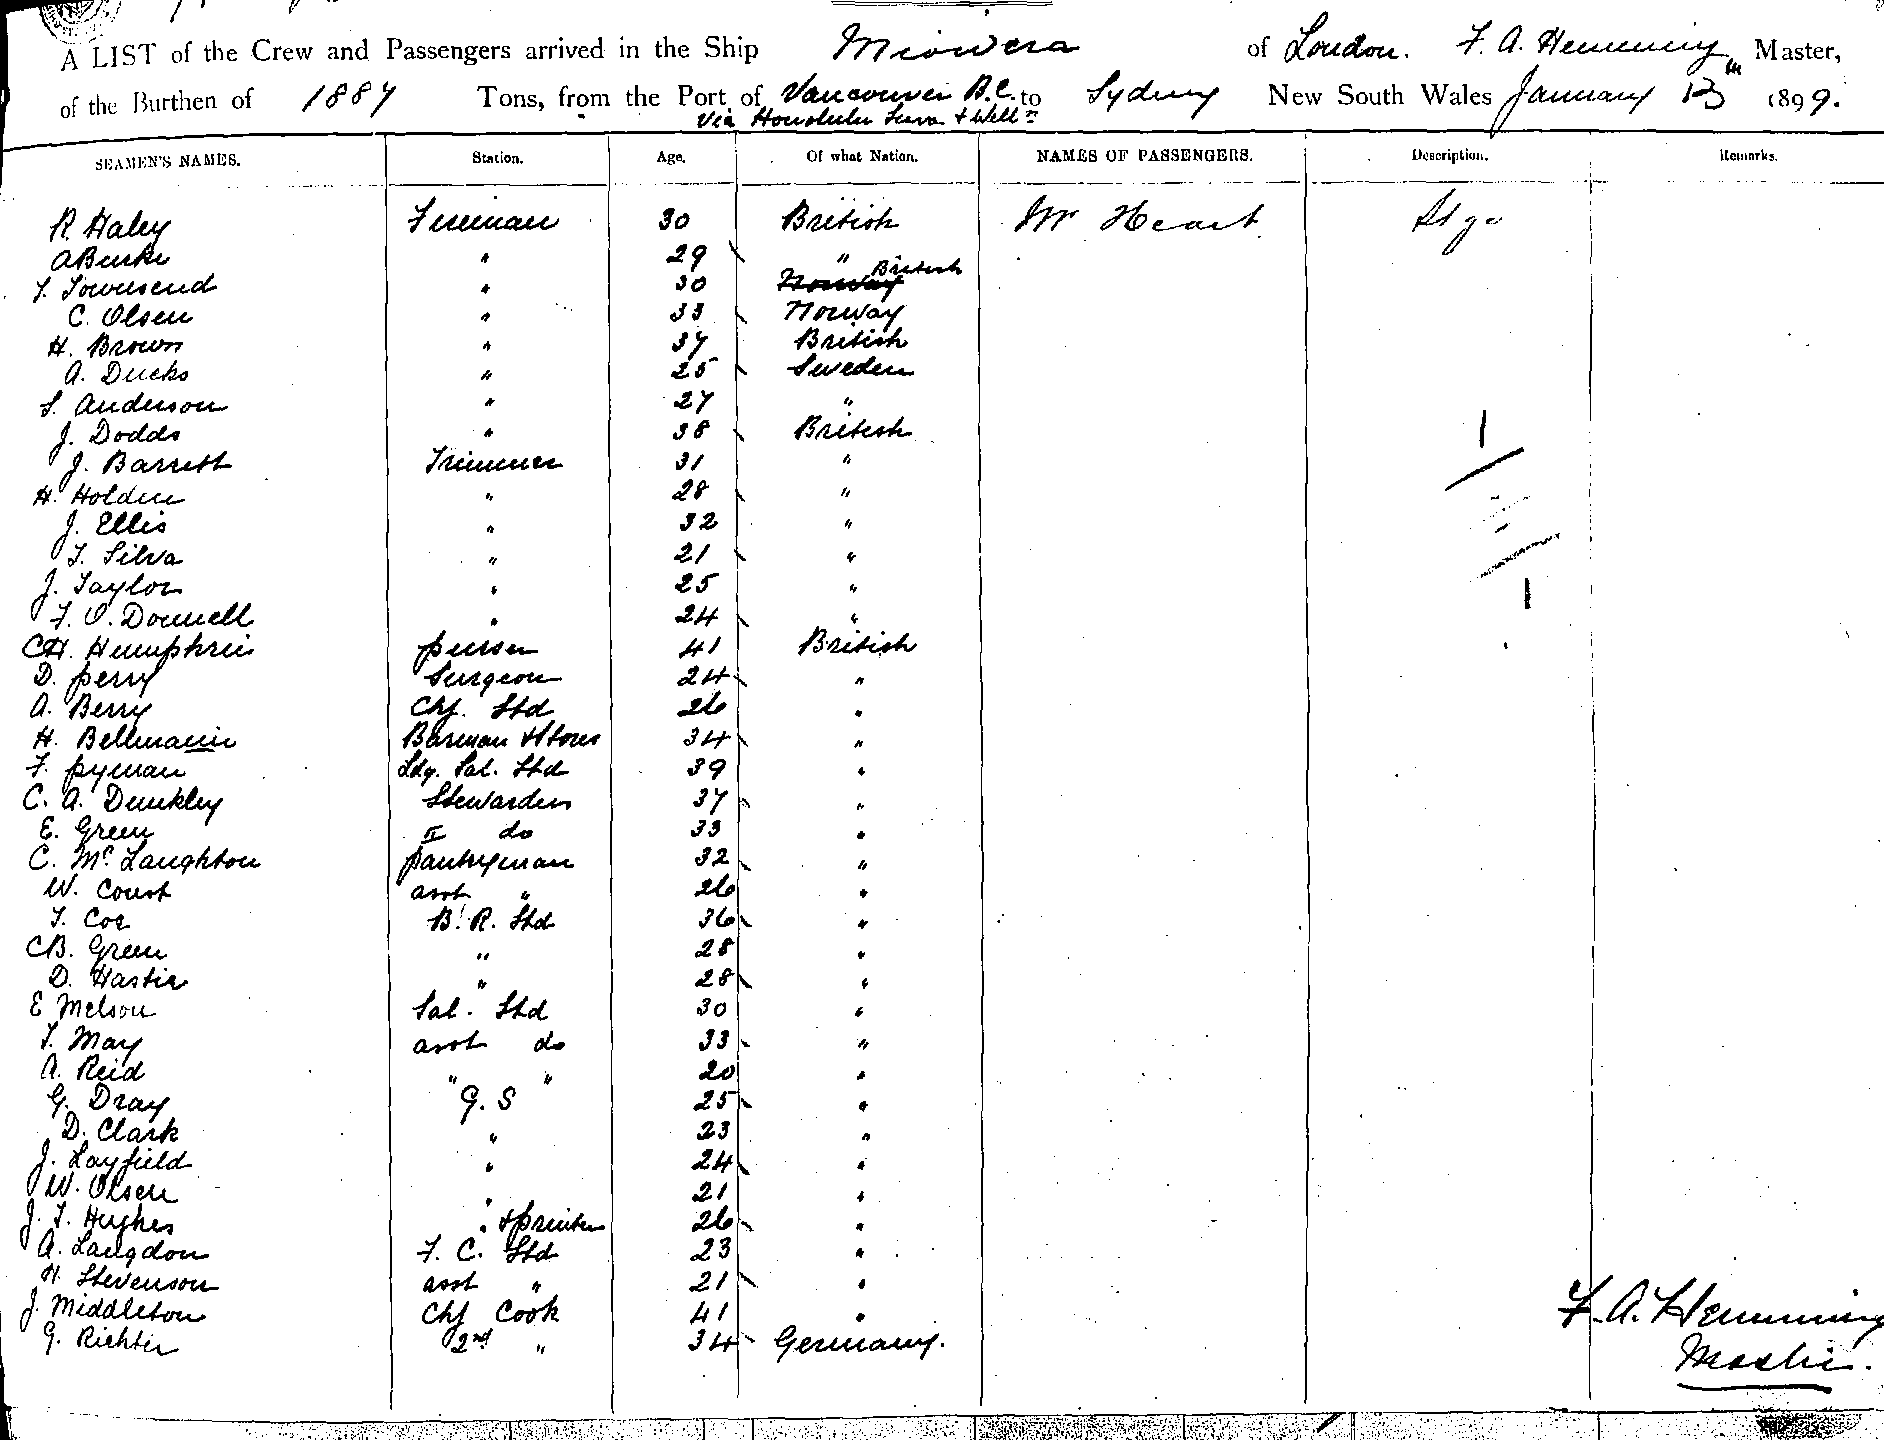 A LIST of the Crew and Passengers arrived in the Ship Miowera of London. F. A. Hemming Master,
of the Burthen of 1887 Tons, from the Port of Vancouver B.C. to Sydney New South Wales January 1899.
Via Honolulu Suva & Welln
SEAMEN'S NAMES. Station. Age. Of what Nation. NAMES OF PASSENGERS. Description. Remarks.
R. Haley Fireman 30 British Mr Heart
A Burke " 29 "
T. Townsend " 30 Norway British
C. Olsen " 33 Norway
H. Brown " 37 British
A. Ducks " 25 Sweden
S. Anderson " 27 "
J. Dodds " 38 British
J. Barrett Trimmer 31 "
H. Holden " 28 "
J. Ellis " 32 "
T. Silva " 21 "
J. Taylor " 25 "
F. O. Donnell " 24 "
CH. Humphries purser 41 British
D. perry Surgeon 24 "
A. Berry Chf. Std 26 "
H. Bellmann Barman & Stores 34 "
F. pyman Ldg. Sal. Std 39 "
C. A. Dunkley Stewardess 37 "
E. Green II do 33 "
C. Mc Laughton pantryman 32 "
W. Court asst " 26 "
T. Coe B. R. Std 36 "
CB. Green " 28 "
D. Hastie " 28 "
E Melson Sal. Std 30 "
T. May asst do 33 "
A. Reid " " 20 "
G. Dray G. S 25 "
D. Clark " 23 "
J. Layfield " 24 "
W. Olsen " 21 "
J. T. Hughes " & printer 26 "
A. Langdon F. C. Std 23 "
H. Stevenson asst " 21 "
J. Middleton Chf Cook 41 "
G. Richter 2nd " 34 Germany.
F. A. Hemming
Master.